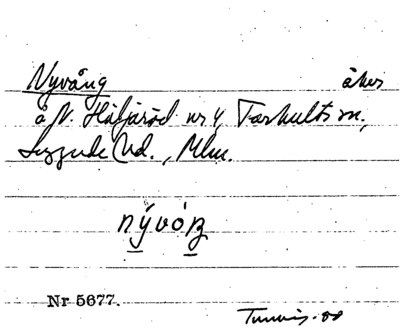 Nyvång åker
å N. Häljaröd nr 4, Farhults sn,
Luggude hd., Mlm.
nývóŋ
Nr 5677.